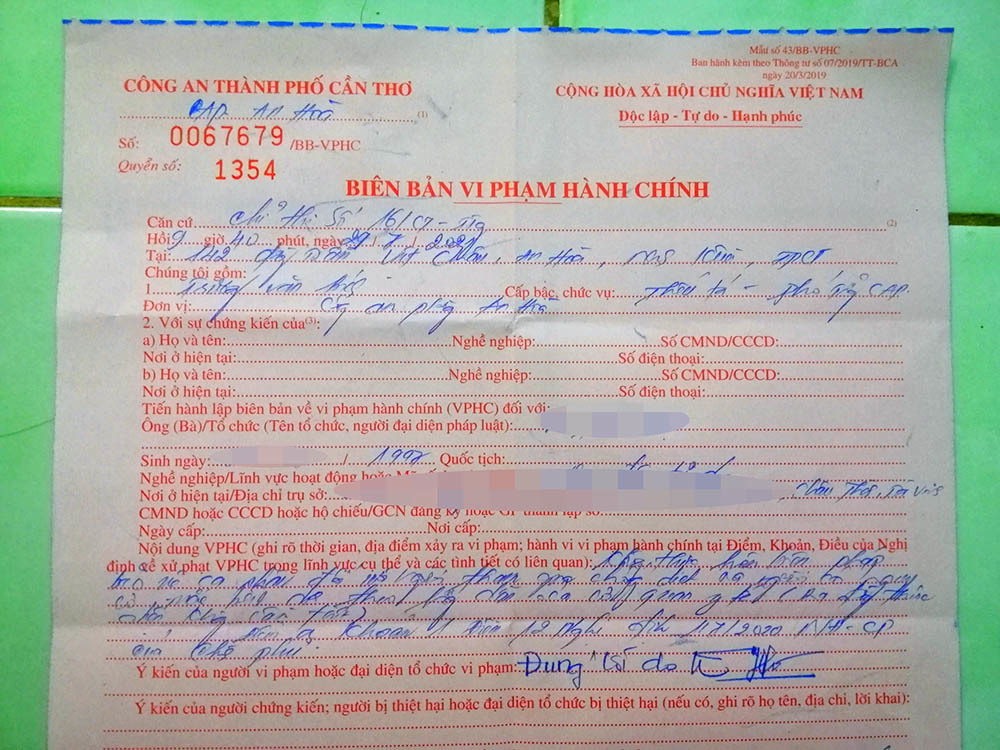 Mẫu số 43/BB-VPHC
Ban hành kèm theo Thông tư số 07/2019/TT-BCA
ngày 20/3/2019
CÔNG AN THÀNH PHỐ CẦN THƠ
CỘNG HÒA XÃ HỘI CHỦ NGHĨA VIỆT NAM
CAP An Hoà (1)
Độc lập - Tự do - Hạnh phúc
Số: 0067679 /BB-VPHC
Quyển số: 1354
BIÊN BẢN VI PHẠM HÀNH CHÍNH
Căn cứ Chỉ thị số 16/CT-TTg (2)
Hồi 9 giờ 40 phút, ngày 29/7/2021
Tại: 142 An Hoà, Ninh Kiều, TPCT
Chúng tôi gồm:
1. Trương Văn Cấp bậc, chức vụ: Thiếu tá - CAP
Đơn vị: Công an phường An Hoà
2. Với sự chứng kiến của(3):
a) Họ và tên: Nghề nghiệp: Số CMND/CCCD:
Nơi ở hiện tại: Số điện thoại:
b) Họ và tên: Nghề nghiệp: Số CMND/CCCD:
Nơi ở hiện tại: Số điện thoại:
Tiến hành lập biên bản về vi phạm hành chính (VPHC) đối với:
Ông (Bà)/Tổ chức (Tên tổ chức, người đại diện pháp luật):
Sinh ngày: / 1997 Quốc tịch:
Nghề nghiệp/Lĩnh vực hoạt động hoặc
Nơi ở hiện tại/Địa chỉ trụ sở:
CMND hoặc CCCD hoặc hộ chiếu/GCN đăng ký hoặc GP thành lập số
Ngày cấp: Nơi cấp:
Nội dung VPHC (ghi rõ thời gian, địa điểm xảy ra vi phạm; hành vi vi phạm hành chính tại Điểm, Khoản, Điều của Nghị
định về xử phạt VPHC trong lĩnh vực cụ thể và các tình tiết có liên quan): Không thực hiện biện pháp
bảo vệ cá nhân đối với người tham gia chống dịch và người có nguy
cơ mắc bệnh dịch theo hướng dẫn của cơ quan y tế
điểm a khoản 1 Điều 12 Nghị định 117/2020 NĐ-CP
của Chính phủ.
Ý kiến của người vi phạm hoặc đại diện tổ chức vi phạm: Đúng lý do
Ý kiến của người chứng kiến; người bị thiệt hại hoặc đại diện tổ chức bị thiệt hại (nếu có, ghi rõ họ tên, địa chỉ, lời khai):